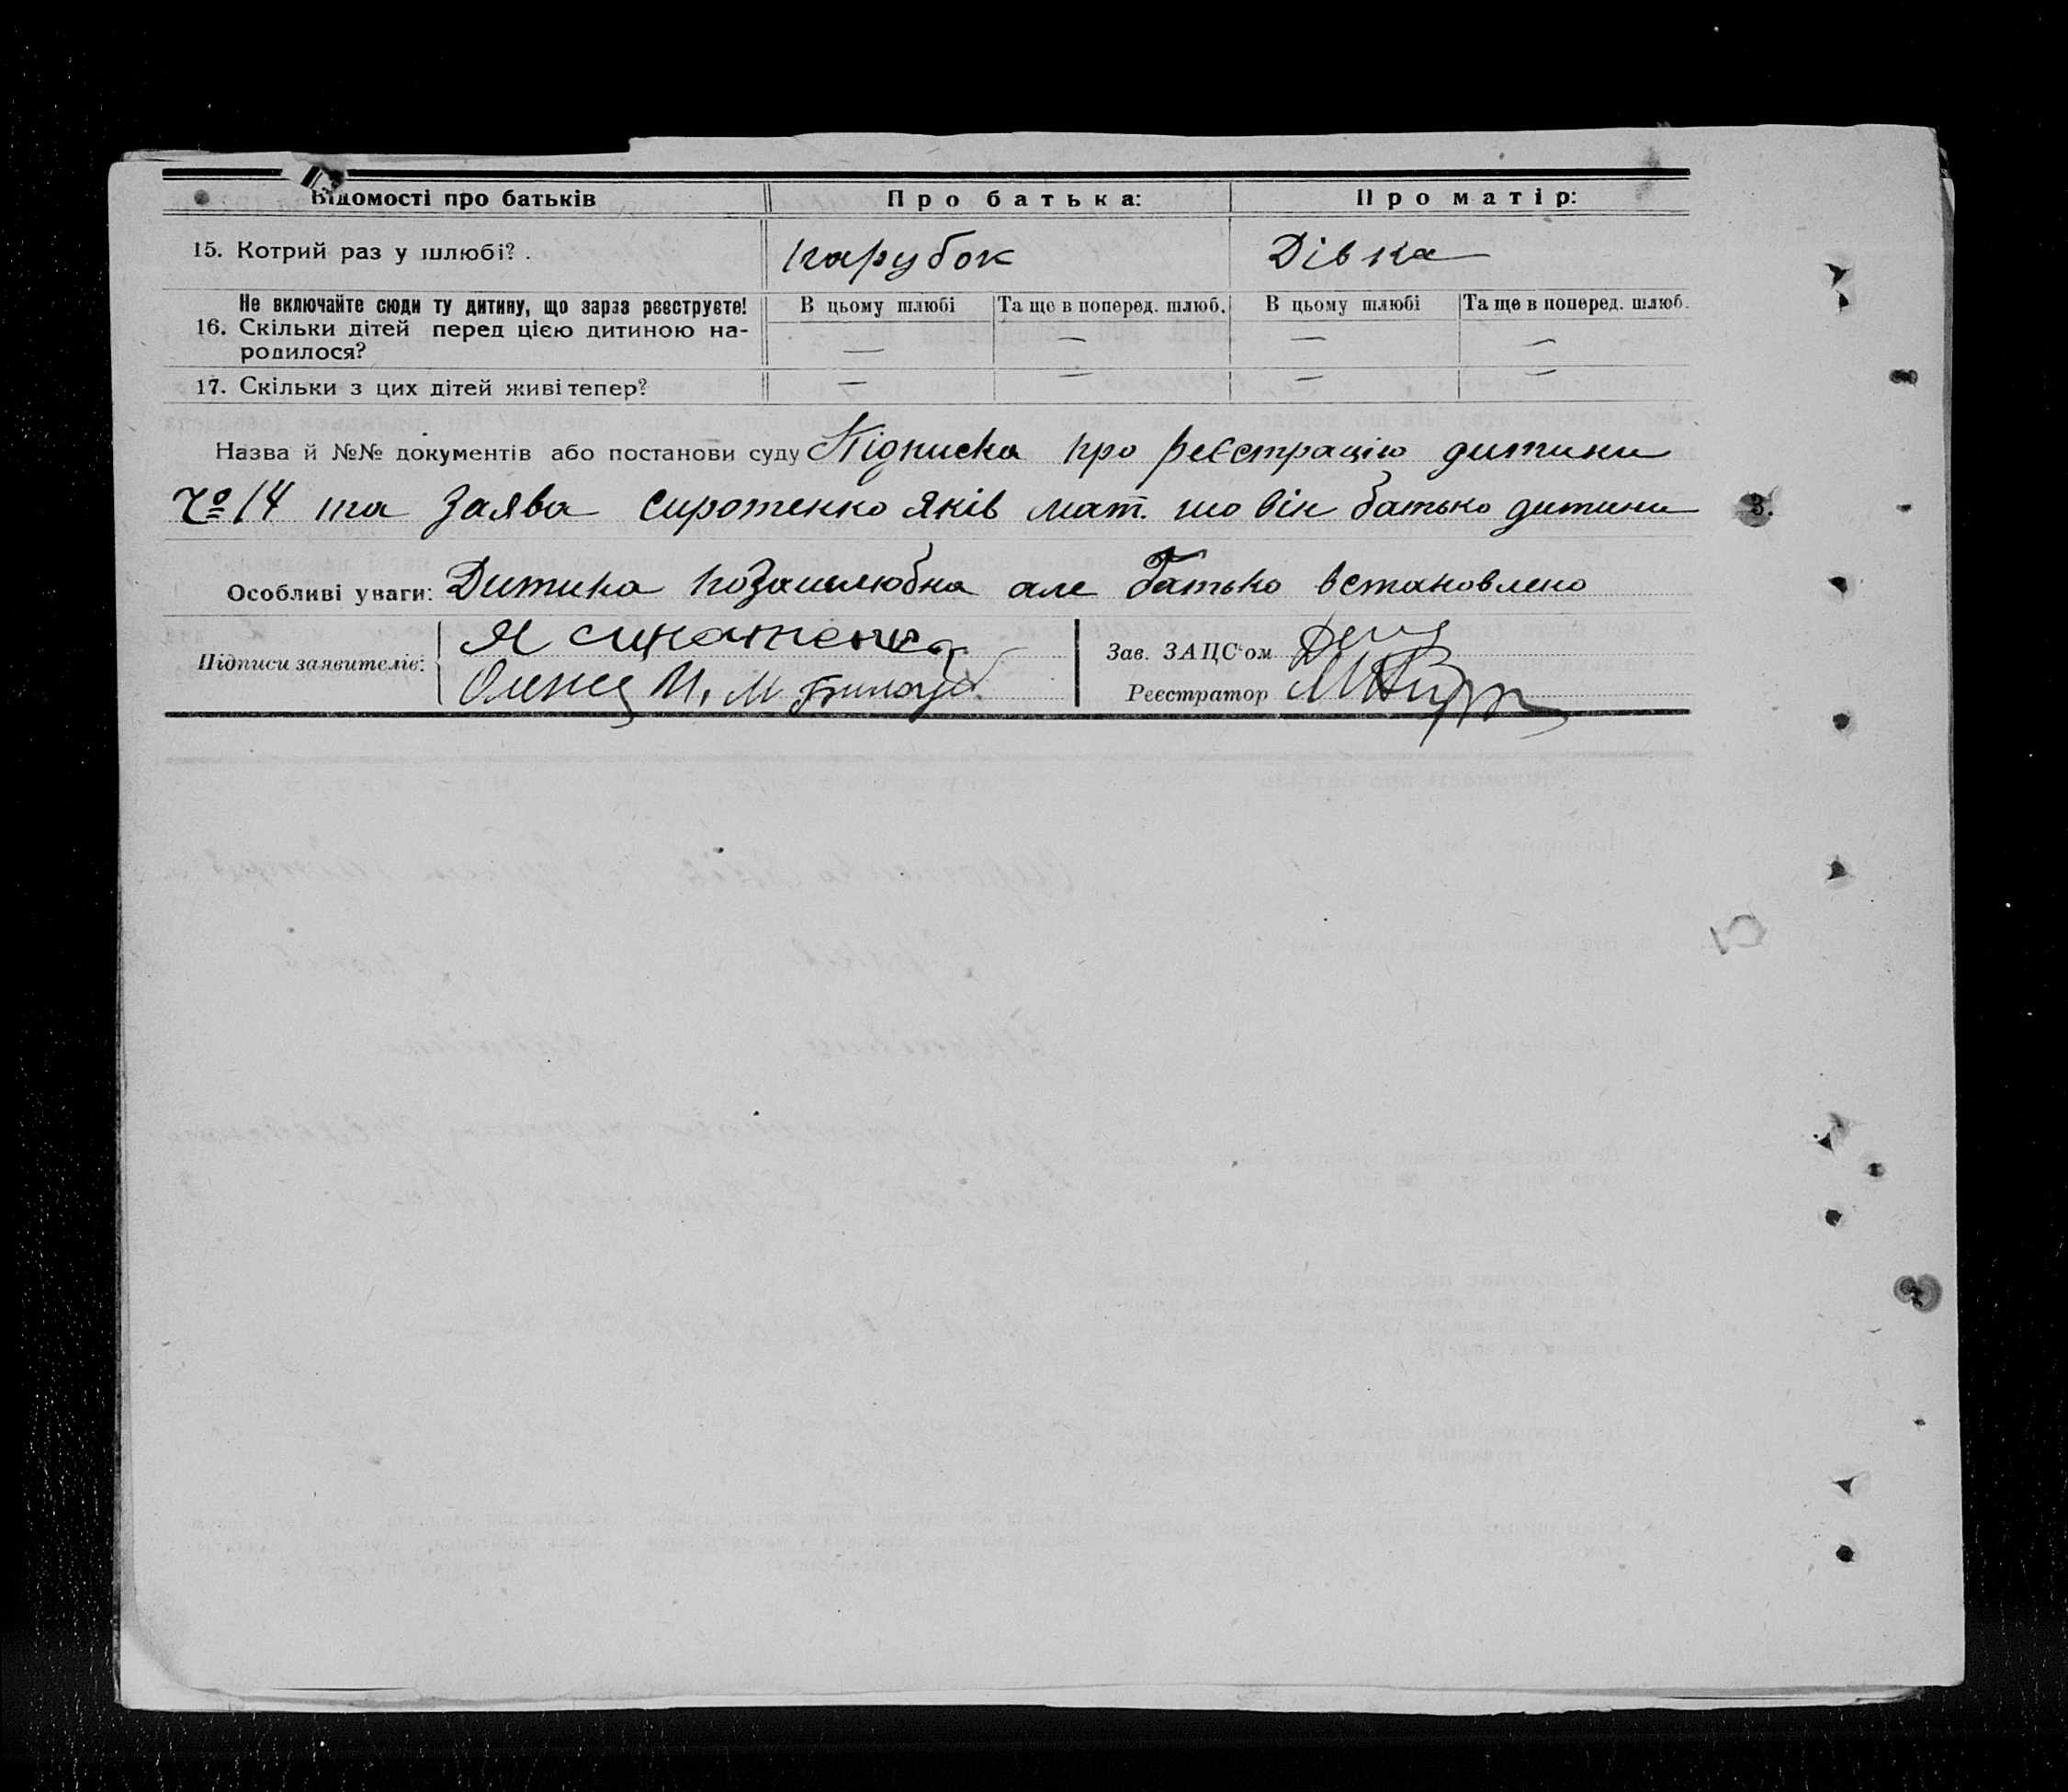 Відомості про батьків Про батька: Про матір:
15. Котрий раз у шлюбі? . парубок Дівка
Не включайте сюди ту дитину, що зараз реєструєте! В цьому шлюбі Та ще в поперед. шлюб. В цьому шлюбі Та ще в поперед. шлюб.
16. Скільки дітей перед цією дитиною на-
родилося? — — — —
17. Скільки з цих дітей живі тепер? — — — —
Назва й №№ документів або постанови суду Підписка про реєстрацію дитини
№ 14 та Заява Сиротенко Яків мат. що він батько дитини
3.
Особливі уваги: Дитина позашлюбна але батько встановлено
Підписи заявителів: Я
М. М.
Зав. ЗАЦС'ом
Реєстратор